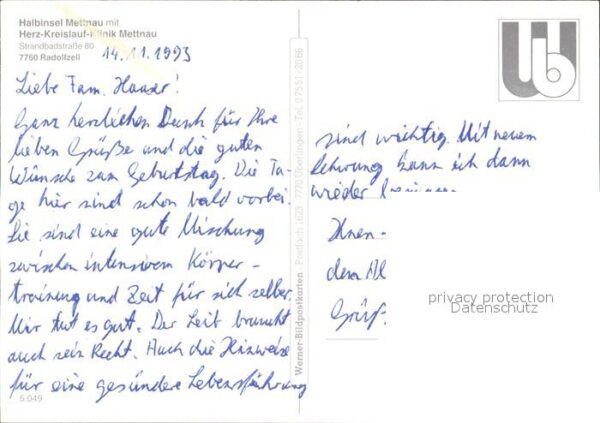 Halbinsel Mettnau mit
Herz-Kreislauf-Klinik Mettnau
Strandbadstraße 80
7760 Radolfzell
14.11.1993
Liebe Fam. Hauser!
Ganz herzlichen Dank für Ihre
lieben Grüße und die guten
Wünsche zum Geburtstag. Die Ta-
ge hier sind schon bald vorbei.
Sie sind eine gute Mischung
zwischen intensivem Körper-
training und Zeit für sich selber.
Mir tut es gut. Der Leib braucht
auch sein Recht. Auch die Hinweise
für eine gesündere Lebensführung
5.049
Werner-Bildpostkarten · Postfach 1623 · 7770 Überlingen · Tel. 07551/2066
sind wichtig. Mit neuem
Schwung kann ich dann
wieder
Ihnen
dem
Grüß
privacy protection
Datenschutz